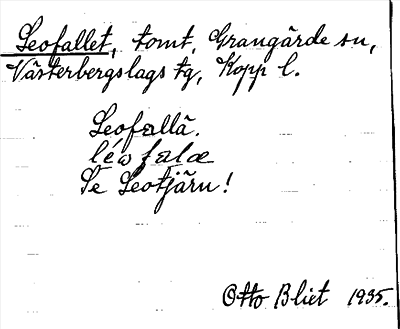 Leofallet, tomt, Grangärde sn,
Västerbergslags tg, Kopp l.
Leofallä.
léω falæ
Se Leotjärn!
Otto Blixt 1935.